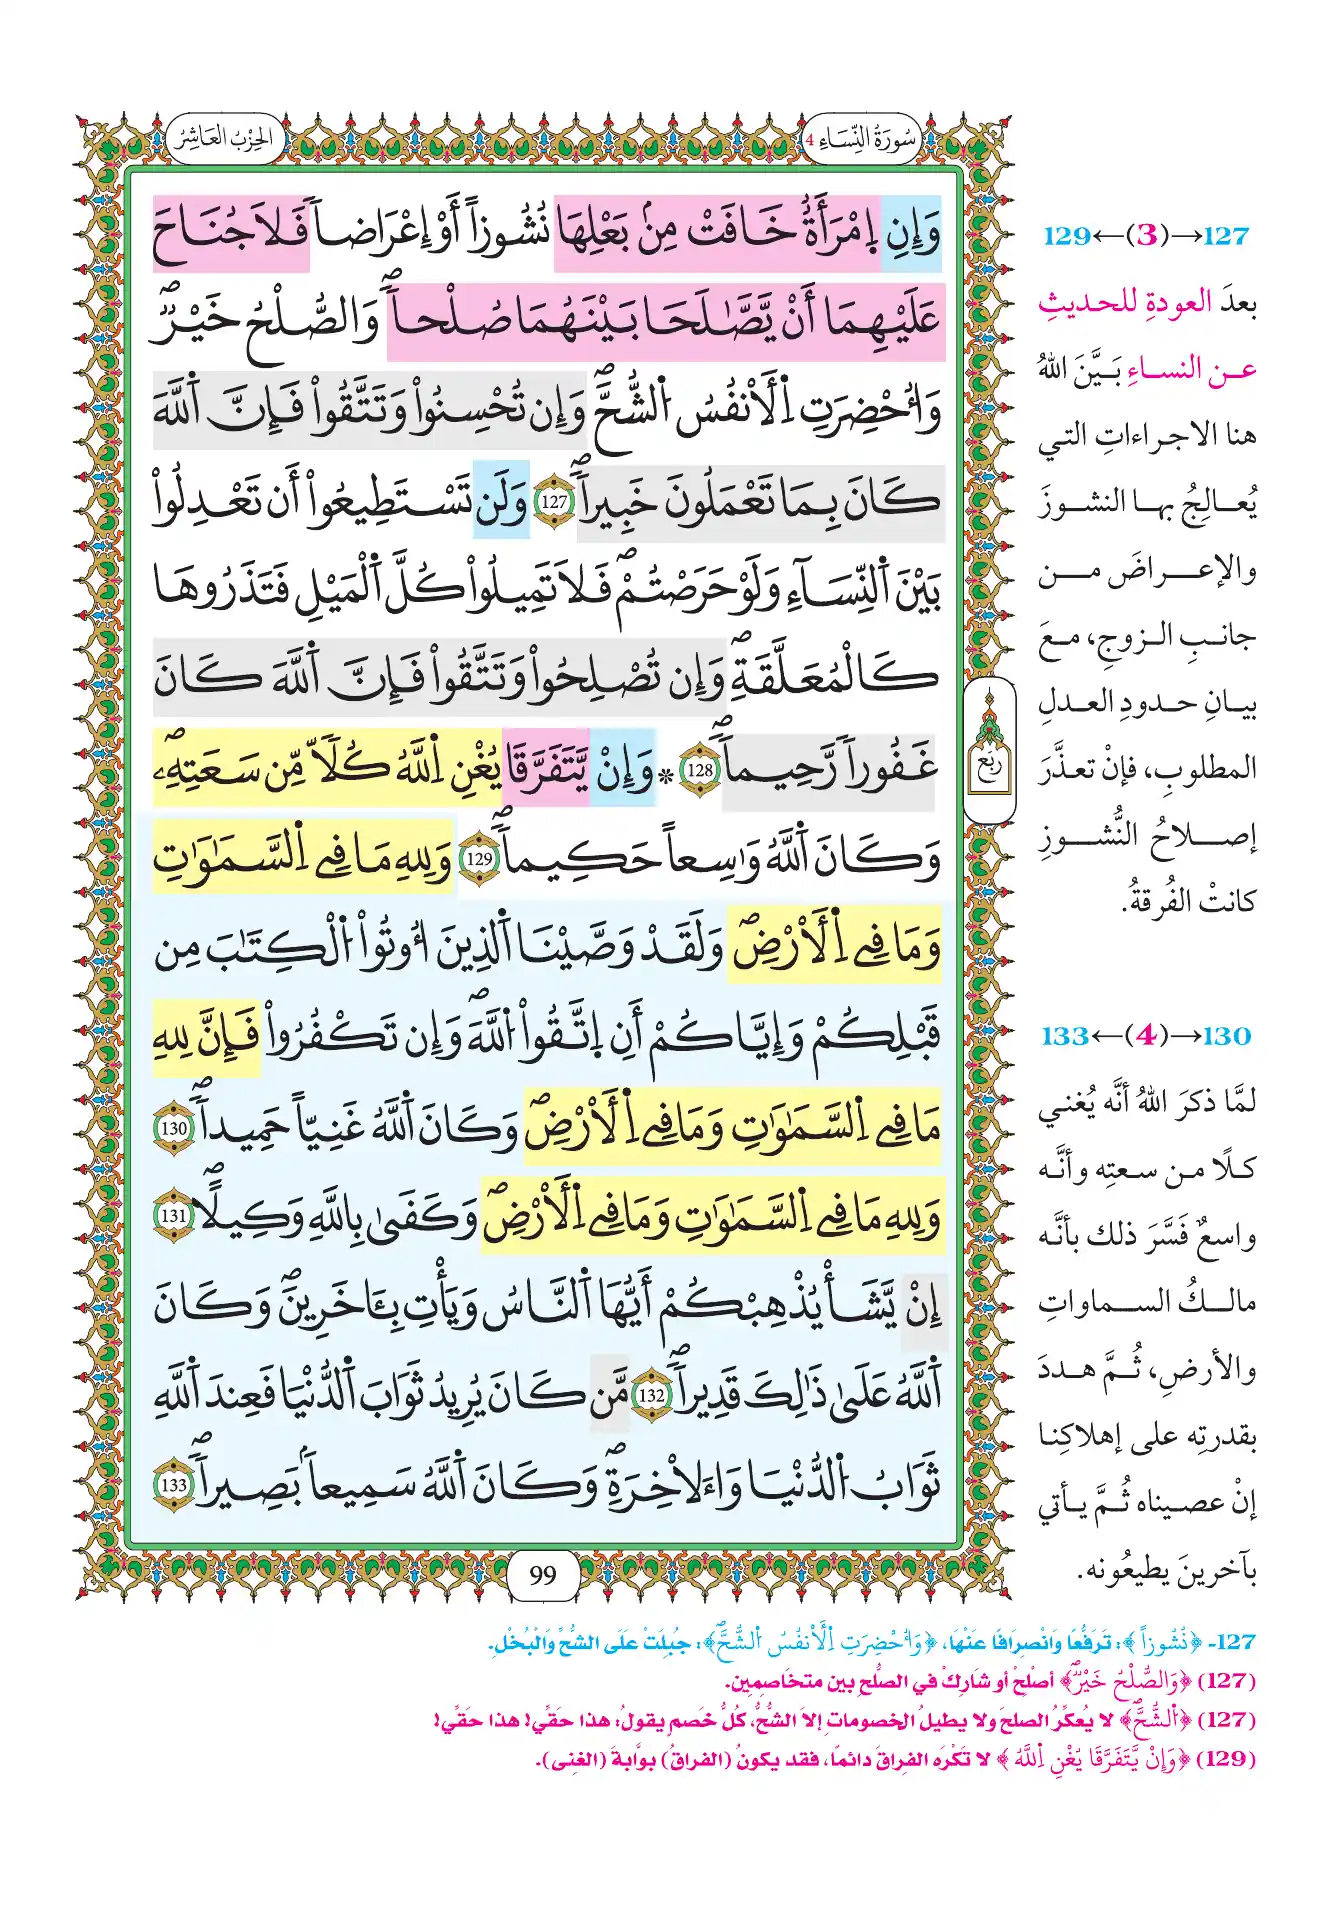 سُورَةُ النِّسَاءِ 4
الحِزْبُ العَاشِرُ
وَإِنِ اِمْرَأَةٌ خَافَتْ مِنۢ بَعْلِهَا نُشُوزاً أَوْ إِعْرَاضاً فَلَا جُنَاحَ
عَلَيْهِمَا أَنْ يَّصَّـٰلَحَا بَيْنَهُمَا صُلْحاًۖ وَالصُّلْحُ خَيْرٌۖ
وَأُحْضِرَتِ اِلْأَنْفُسُ الشُّحَّۖ وَإِن تُحْسِنُواْ وَتَتَّقُواْ فَإِنَّ اَللَّهَ
كَانَ بِمَا تَعْمَلُونَ خَبِيراًۖ 127 وَلَن تَسْتَطِيعُواْ أَن تَعْدِلُواْ
بَيْنَ اَلنِّسَآءِ وَلَوْ حَرَصْتُمْۖ فَلَا تَمِيلُواْ كُلَّ اَلْمَيْلِ فَتَذَرُوهَا
كَالْمُعَلَّقَةِۖ وَإِن تُصْلِحُواْ وَتَتَّقُواْ فَإِنَّ اَللَّهَ كَانَ
غَفُوراً رَّحِيماًۖ 128 * وَإِنْ يَّتَفَرَّقَا يُغْنِ اِللَّهُ كُلّاً مِّن سَعَتِهِۦۖ
وَكَانَ اَللَّهُ وَٰسِعاً حَكِيماًۖ 129 وَلِلهِ مَا فِے اِلسَّمَٰوَٰتِ
وَمَا فِے اِلْأَرْضِۖ وَلَقَدْ وَصَّيْنَا اَلذِينَ أُوتُواْ اُلْكِتَٰبَ مِن
قَبْلِكُمْ وَإِيَّاكُمْ أَنِ اِتَّقُواْ اُللَّهَۖ وَإِن تَكْفُرُواْ فَإِنَّ لِلهِ
مَا فِے اِلسَّمَٰوَٰتِ وَمَا فِے اِلْأَرْضِۖ وَكَانَ اَللَّهُ غَنِيّاً حَمِيداًۖ 130
وَلِلهِ مَا فِے اِلسَّمَٰوَٰتِ وَمَا فِے اِلْأَرْضِۖ وَكَفَىٰ بِاللَّهِ وَكِيلًاۖ 131
إِنْ يَّشَأْ يُذْهِبْكُمْ أَيُّهَا اَلنَّاسُ وَيَأْتِ بِـَٔاخَرِينَۖ وَكَانَ
اَللَّهُ عَلَىٰ ذَٰلِكَ قَدِيراًۖ 132 مَّن كَانَ يُرِيدُ ثَوَابَ اَلدُّنْيَا فَعِندَ اَللَّهِ
ثَوَابُ اُلدُّنْيَا وَاَلَاخِرَةِۖ وَكَانَ اَللَّهُ سَمِيعاًۢ بَصِيراًۖ 133
رُبع
99
127→(3)←129
بعدَ العودةِ للحديثِ
عن النساءِ بَيَّنَ اللهُ
هنا الاجراءاتِ التي
يُعالِجُ بها النشوزَ
والإعراضَ من
جانبِ الزوجِ، معَ
بيانِ حدودِ العدلِ
المطلوبِ، فإنْ تعذَّرَ
إصلاحُ النُّشوزِ
كانتْ الفُرقةُ.
130→(4)←133
لمَّا ذكرَ اللهُ أنَّه يُغني
كلًا من سعتِه وأنَّه
واسعٌ فَسَّرَ ذلك بأنَّه
مالكُ السماواتِ
والأرضِ، ثُمَّ هددَ
بقدرتِه على إهلاكِنا
إنْ عصيناه ثُمَّ يأتي
بآخرينَ يطيعُونه.
127- ﴿نُشُوزاً﴾: تَرَفُّعًا وَانْصِرَافًا عَنْهَا، ﴿وَأُحْضِرَتِ اِلْأَنفُسُ الشُّحَّۖ﴾: جُبِلَتْ عَلَى الشُّحِّ وَالْبُخْلِ.
(127) ﴿وَالصُّلْحُ خَيْرٌۖ﴾ أصلِحْ أو شَارِكْ في الصُّلحِ بين متخَاصِمِين.
(127) ﴿اُلشُّحَّۖ﴾ لا يُعكِّرُ الصلحَ ولا يطيلُ الخصوماتِ إلاَ الشُّحُّ، كُلُّ خَصمٍ يقولُ: هذا حقِّي! هذا حقِّي!
(129) ﴿وَإِنْ يَّتَفَرَّقَا يُغْنِ اِللَّهُ﴾ لا تَكْرَه الفِراقَ دائمًا، فقد يكونُ (الفراقُ) بوَّابةَ (الغِنى).